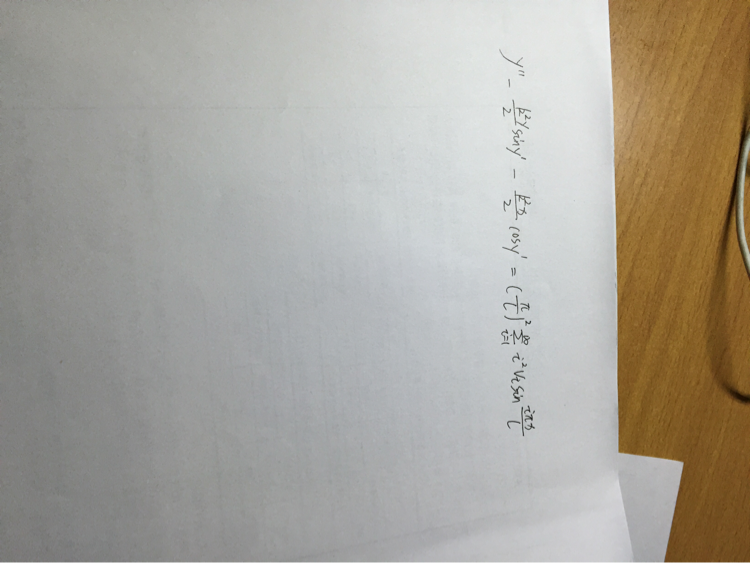 y'' - \frac{k^2 y}{2} \sin y' - \frac{k^2 x}{2} \cos y' = (\frac{\pi}{l})^2 \sum_{i=1}^{\infty} i^2 v_i \sin \frac{i\pi x}{l}